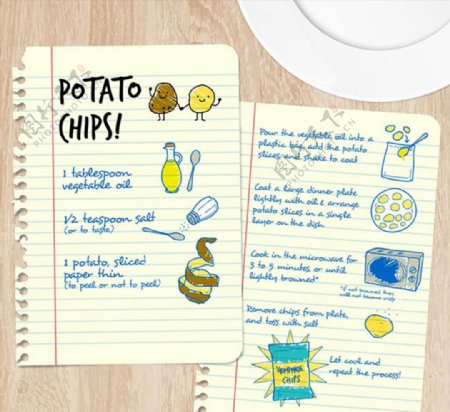 POTATO
CHIPS!
1 tablespoon
vegetable oil
1/2 teaspoon salt
(or to taste)
1 potato, sliced
paper thin
(to peel or not to peel)
Pour the vegetable oil into a
plastic bag, add the potato
slices and shake to coat
Coat a large dinner plate
lightly with oil & arrange
potato slices in a single
layer on the dish.
Cook in the microwave for
3 to 5 minutes or until
lightly browned*
*if not browned they
will not become crisp
Remove chips from plate,
and toss with salt
HOMEMADE
CHIPS
Let cool and
repeat the process!